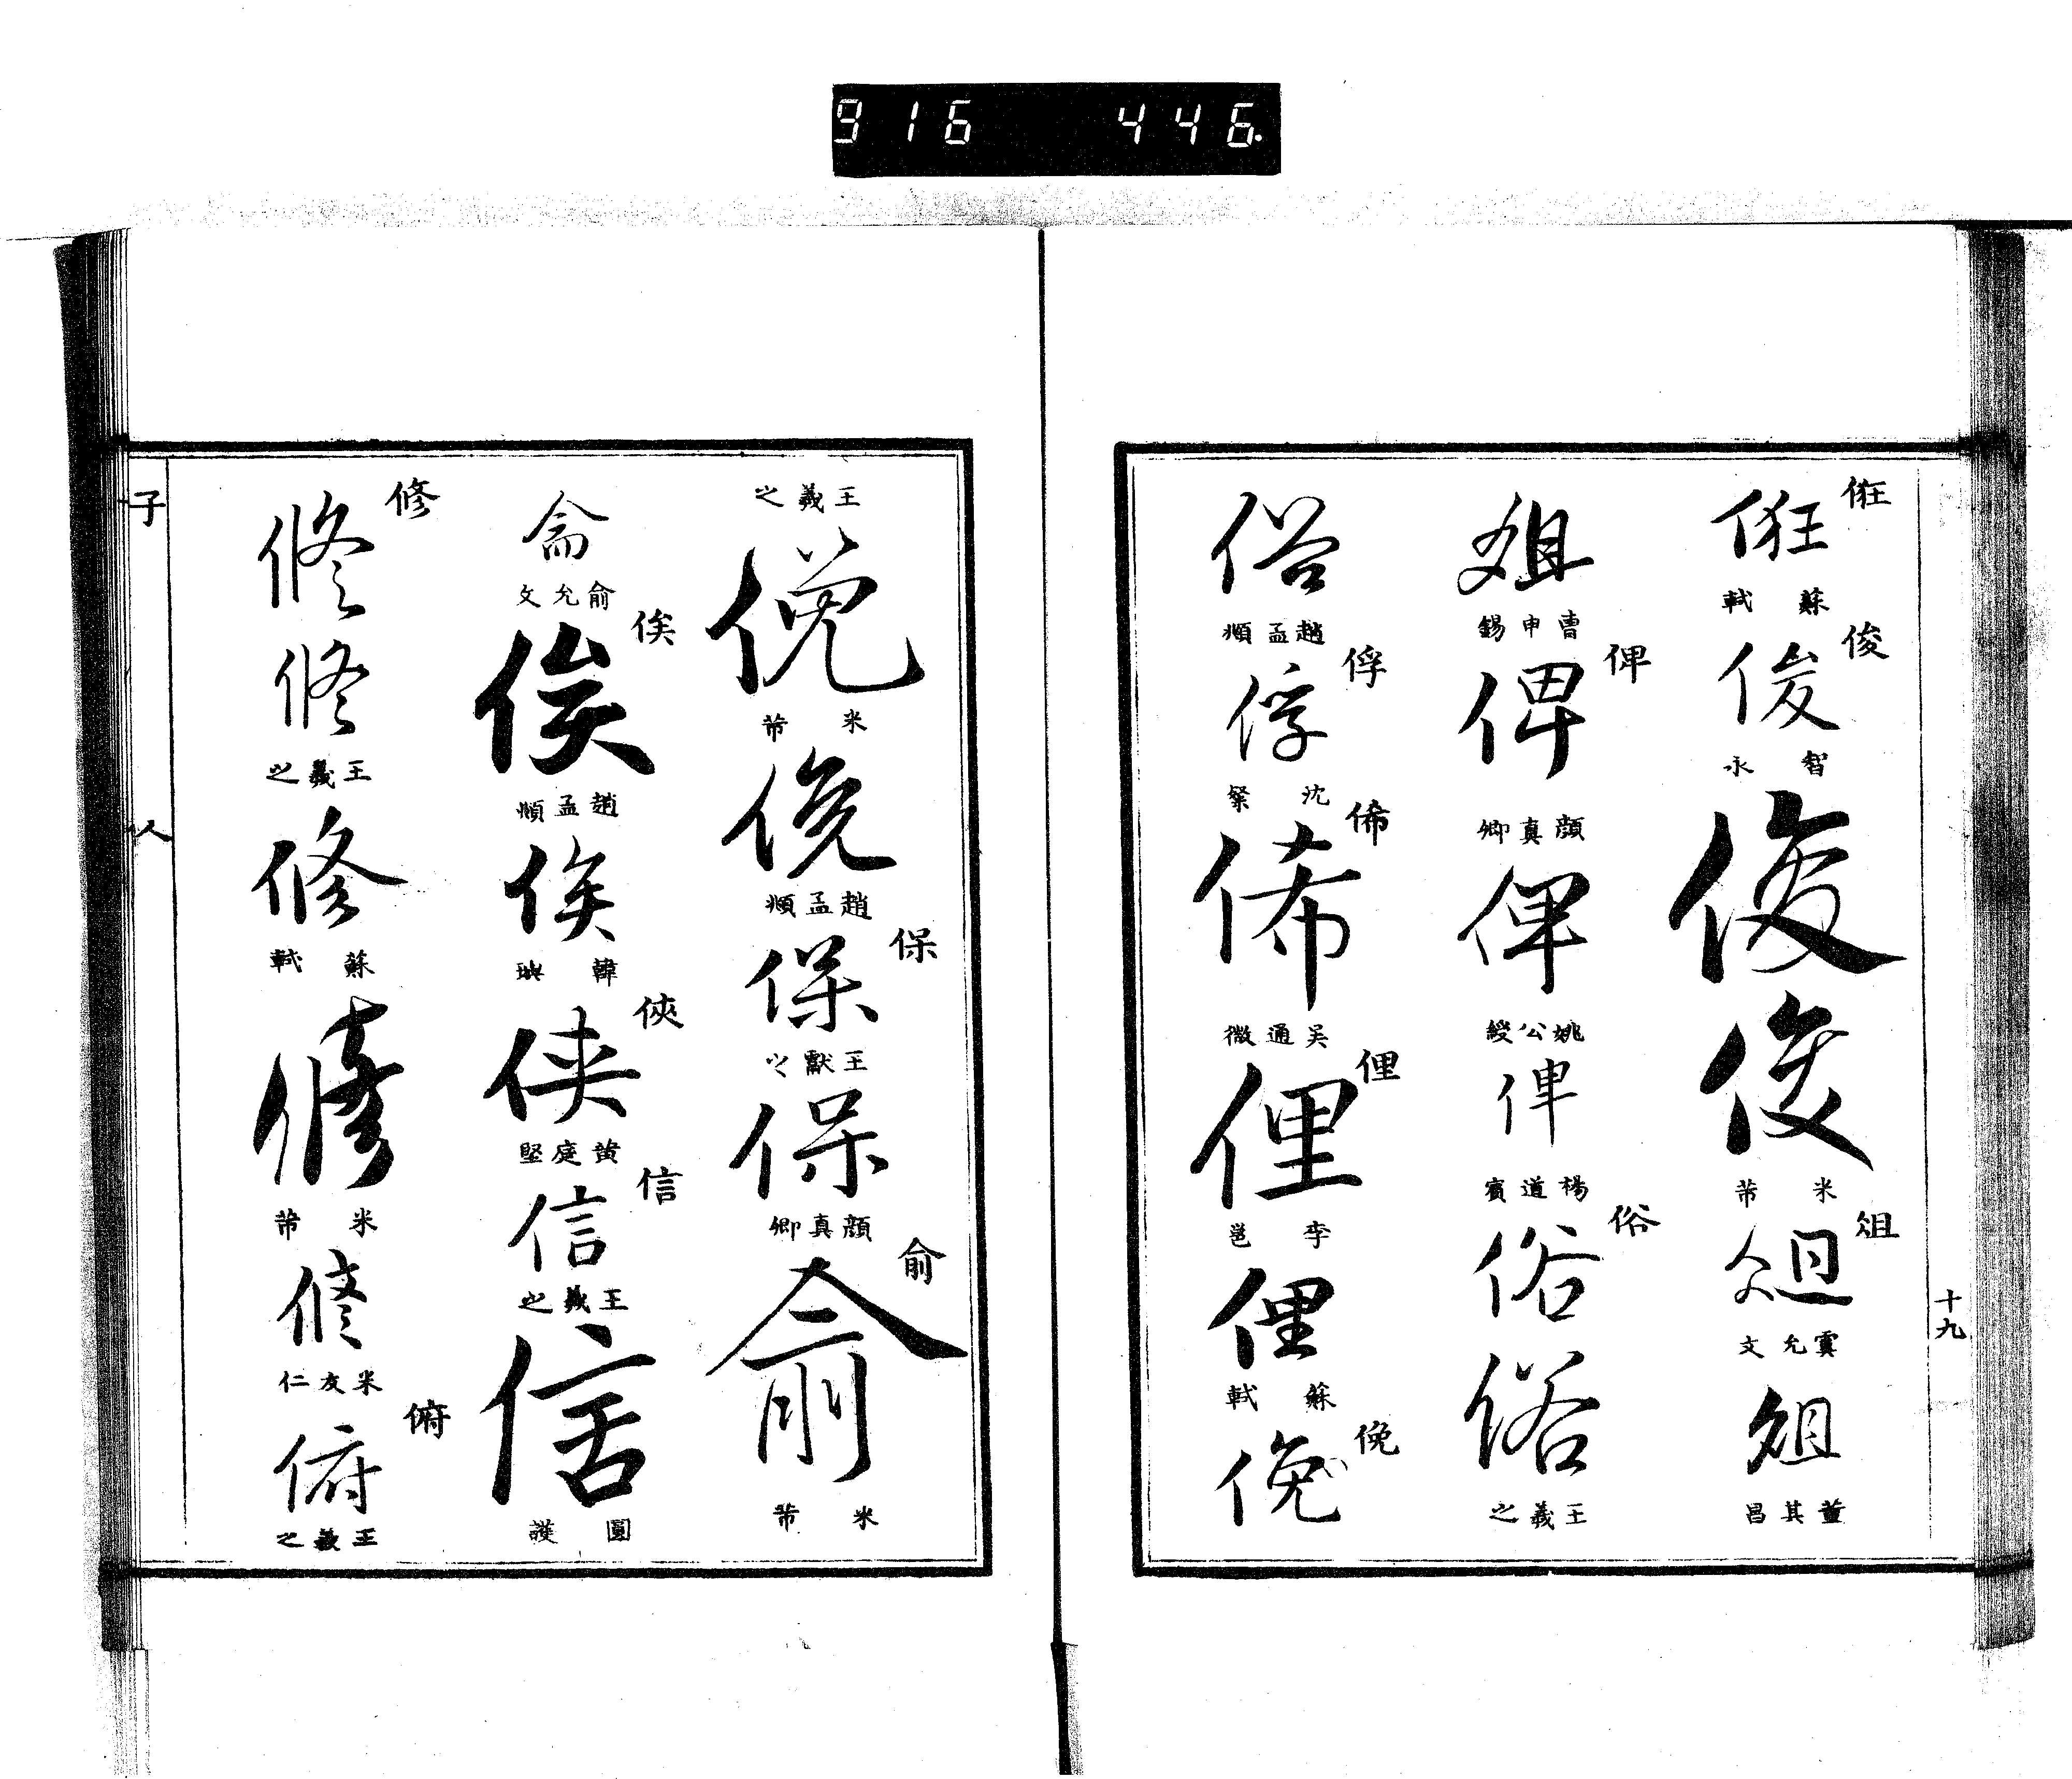 916 446
俇俇蘇軾俊俊智永俊俊米芾俎俎虞允文俎董其昌
十九
俎曹申錫俾俾顏真卿俾姚公綬俾楊道賓俗俗俗王羲之
俗趙孟頫俘俘沈粲俙俙吳通微俚俚李邕俚蘇軾俛俛
王羲之俛米芾俛趙孟頫保保王獻之保顏真卿俞俞米芾
俞俞允文俟俟趙孟頫俟韓璵俠俠黃庭堅信信王羲之信圓護
修修修王羲之修蘇軾修米芾修米友仁俯俯王羲之
子 人